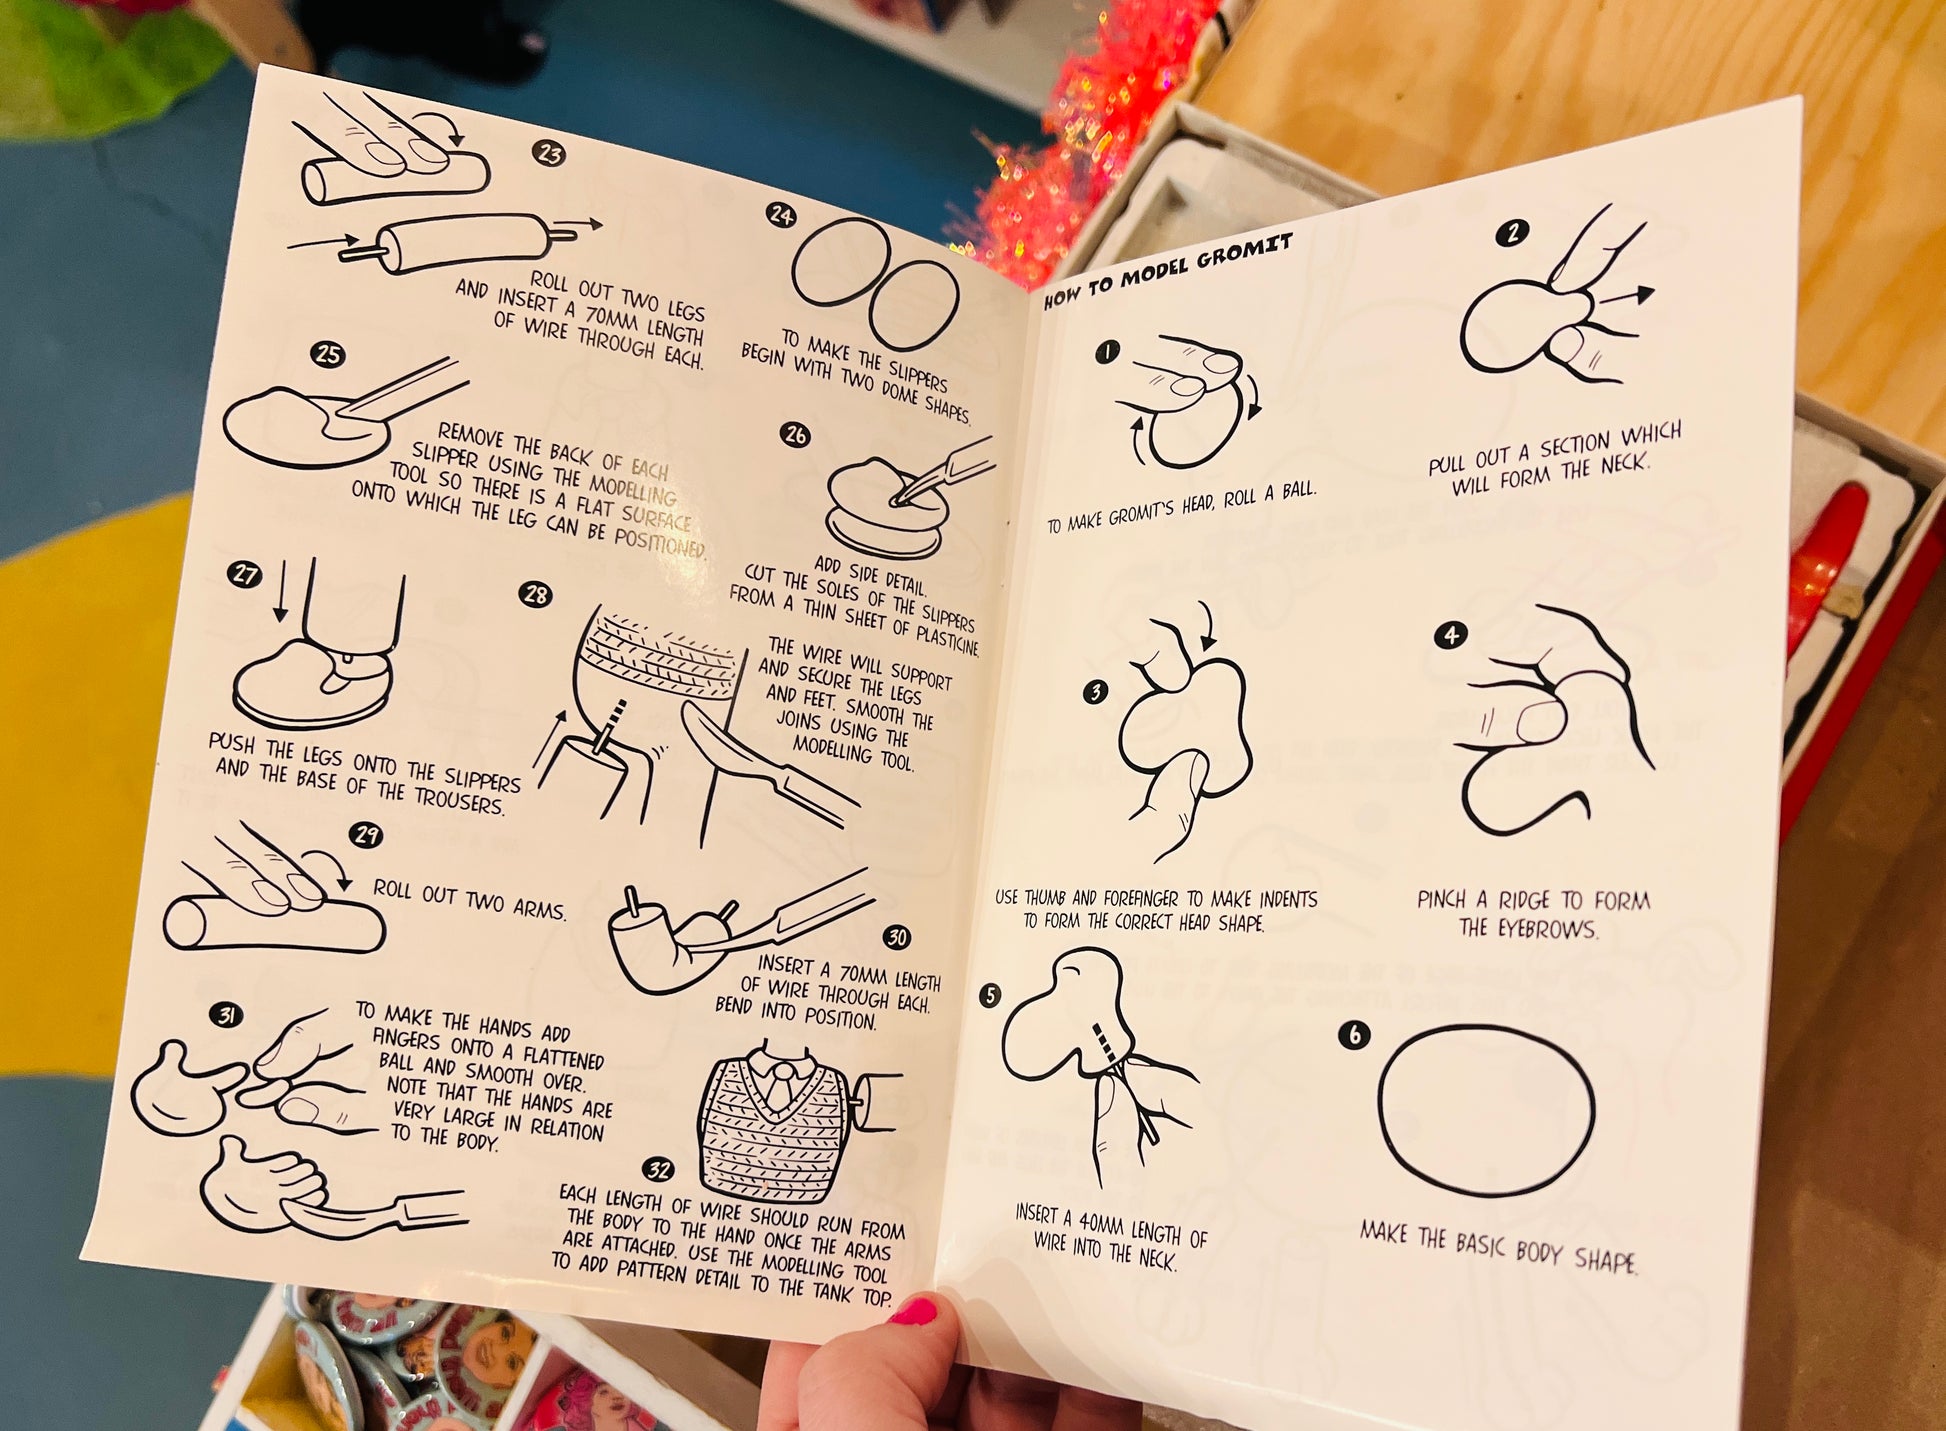 23
ROLL OUT TWO LEGS
AND INSERT A 70MM LENGTH
OF WIRE THROUGH EACH.
24
TO MAKE THE SLIPPERS
BEGIN WITH TWO DOME SHAPES.
25
REMOVE THE BACK OF EACH
SLIPPER USING THE MODELLING
TOOL SO THERE IS A FLAT SURFACE
ONTO WHICH THE LEG CAN BE POSITIONED.
26
ADD SIDE DETAIL.
CUT THE SOLES OF THE SLIPPERS
FROM A THIN SHEET OF PLASTICINE.
27
PUSH THE LEGS ONTO THE SLIPPERS
AND THE BASE OF THE TROUSERS.
28
THE WIRE WILL SUPPORT
AND SECURE THE LEGS
AND FEET. SMOOTH THE
JOINS USING THE
MODELLING TOOL.
29
ROLL OUT TWO ARMS.
30
INSERT A 70MM LENGTH
OF WIRE THROUGH EACH.
BEND INTO POSITION.
31
TO MAKE THE HANDS ADD
FINGERS ONTO A FLATTENED
BALL AND SMOOTH OVER.
NOTE THAT THE HANDS ARE
VERY LARGE IN RELATION
TO THE BODY.
32
EACH LENGTH OF WIRE SHOULD RUN FROM
THE BODY TO THE HAND ONCE THE ARMS
ARE ATTACHED. USE THE MODELLING TOOL
TO ADD PATTERN DETAIL TO THE TANK TOP.
HOW TO MODEL GROMIT
1
TO MAKE GROMIT'S HEAD, ROLL A BALL.
2
PULL OUT A SECTION WHICH
WILL FORM THE NECK.
3
USE THUMB AND FOREFINGER TO MAKE INDENTS
TO FORM THE CORRECT HEAD SHAPE.
4
PINCH A RIDGE TO FORM
THE EYEBROWS.
5
INSERT A 40MM LENGTH OF
WIRE INTO THE NECK.
6
MAKE THE BASIC BODY SHAPE.